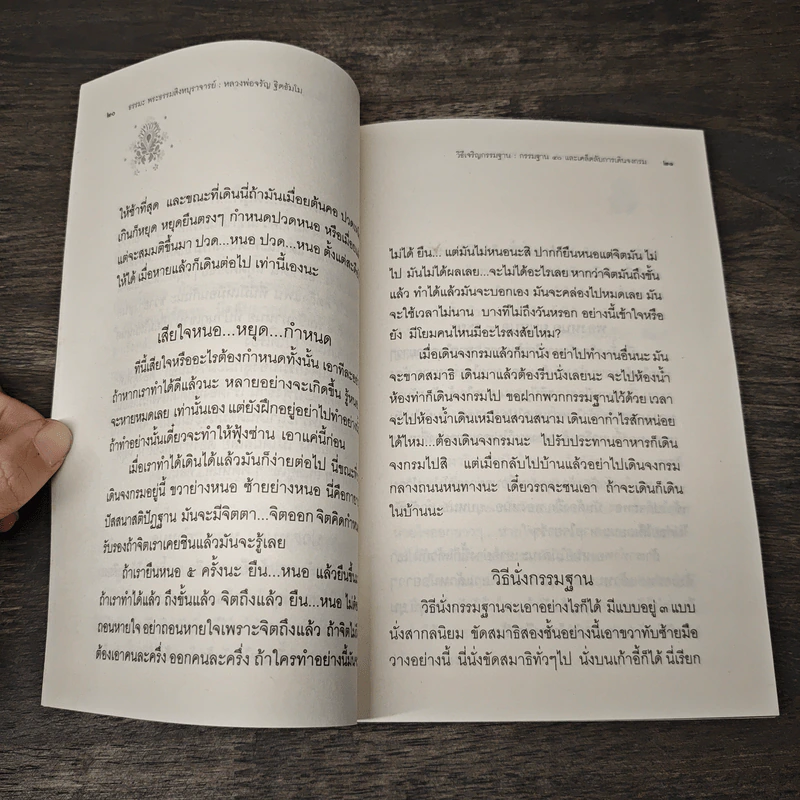 ๒๐ ธรรมะ พระธรรมสิงหบุราจารย์ : หลวงพ่อจรัญ ฐิตธัมโม
ให้ช้าที่สุด และขณะที่เดินนี่ถ้ามันเมื่อยต้นคอ
เกินก็หยุด หยุดยืนตรงๆ กำหนดปวดหนอ
แต่จะสมมติขึ้นมา ปวด...หนอ ปวด...หนอ
ให้ได้ เมื่อหายแล้วก็เดินต่อไป เท่านี้เองนะ
เสียใจหนอ...หยุด...กำหนด
ทีนี้เสียใจหรืออะไรต้องกำหนดทั้งนั้น
ถ้าหากเราทำได้ดีแล้วนะ หลายอย่างจะเกิดขึ้น
จะหายหมดเลย เท่านั้นเอง แต่ยังฝึกอยู่อย่าไปทำอย่าง
ถ้าทำอย่างนั้นเดี๋ยวจะทำให้ฟุ้งซ่าน เอาแค่นี้ก่อน
เมื่อเราทำได้เดินได้แล้วมันก็ง่ายต่อไป
เดินจงกรมอยู่นี้ ขวาย่างหนอ ซ้ายย่างหนอ
ปัสสนาสติปัฏฐาน มันจะมีจิตตา...จิตออก
รับรองถ้าจิตเราเคยชินแล้วมันจะรู้เลย
ถ้าเรายืนหนอ ๕ ครั้งนะ ยืน...หนอ
ถ้าเราทำได้แล้ว ถึงขั้นแล้ว จิตถึงแล้ว ยืน...หนอ
ถอนหายใจ อย่าถอนหายใจเพราะจิตถึงแล้ว
ต้องเอาคนละครึ่ง ออกคนละครึ่ง ถ้าใครทำอย่างนี้
วิธีเจริญกรรมฐาน : กรรมฐาน ๔๐ และเคล็ดลับการเดินจงกรม ๒๑
ไม่ได้ ยืน... แต่มันไม่หนอนะสิ ปากก็ยืนหนอแต่จิตมัน ไม่
ไป มันไม่ได้ผลเลย...จะไม่ได้อะไรเลย หากว่าจิตมันถึงขั้น
แล้ว ทำได้แล้วมันจะบอกเอง มันจะคล่องไปหมดเลย มัน
จะใช้เวลาไม่นาน บางทีไม่ถึงวันหรอก อย่างนี้เข้าใจหรือ
ยัง มีโยมคนไหนมีอะไรสงสัยไหม?
เมื่อเดินจงกรมแล้วก็มานั่ง อย่าไปทำงานอื่นนะ มัน
จะขาดสมาธิ เดินมาแล้วต้องรีบนั่งเลยนะ จะไปห้องน้ำ
ห้องท่าก็เดินจงกรมไป ขอฝากพวกกรรมฐานไว้ด้วย เวลา
จะไปห้องน้ำเดินเหมือนสวนสนาม เดินเอากำไรสักหน่อย
ได้ไหม...ต้องเดินจงกรมนะ ไปรับประทานอาหารก็เดิน
จงกรมไปสิ แต่เมื่อกลับไปบ้านแล้วอย่าไปเดินจงกรม
กลางถนนหนทางนะ เดี๋ยวรถจะชนเอา ถ้าจะเดินก็เดิน
ในบ้านนะ
วิธีนั่งกรรมฐาน
วิธีนั่งกรรมฐานจะเอาอย่างไรก็ได้ มีแบบอยู่ ๓ แบบ
นั่งสากลนิยม ขัดสมาธิสองชั้นอย่างนี้เอาขวาทับซ้ายมือ
วางอย่างนี้ นี่นั่งขัดสมาธิทั่วๆไป นั่งบนเก้าอี้ก็ได้ นี่เรียก